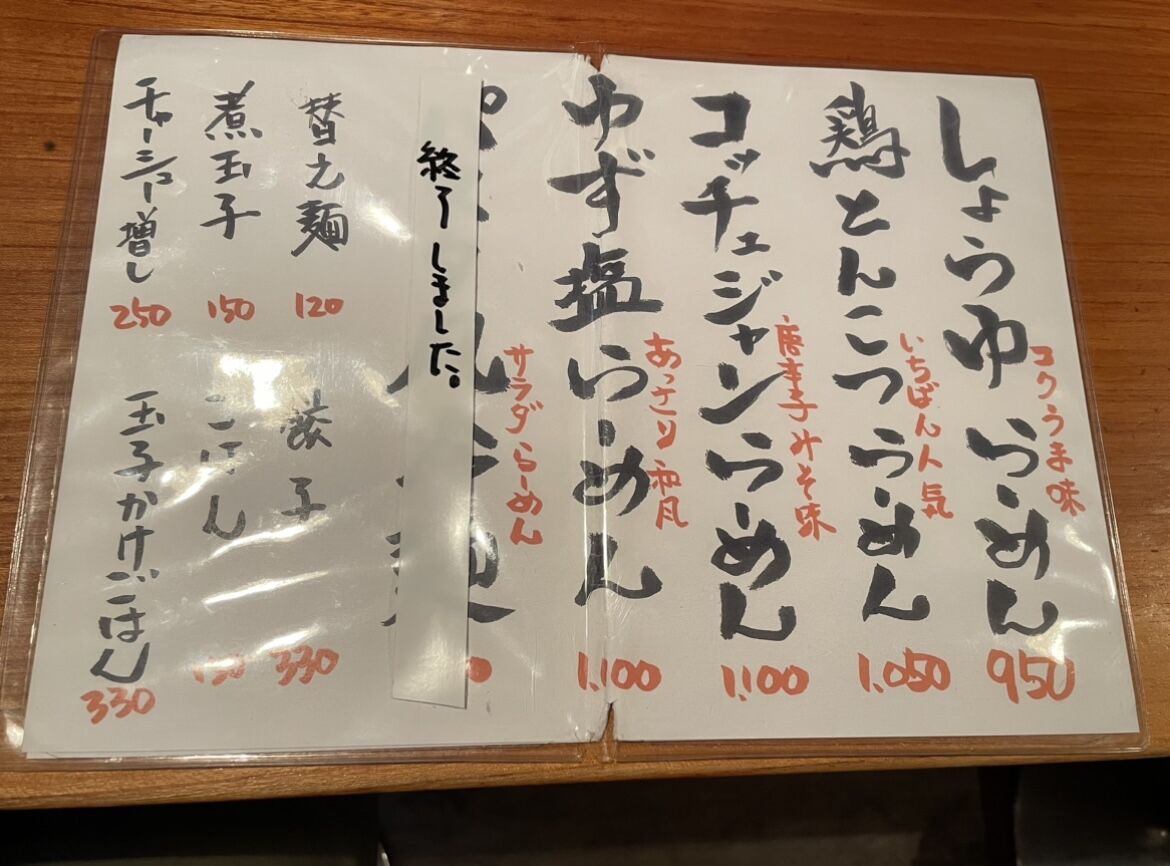 しょうゆらーめん
コクうま味
950
鶏とんこつらーめん
いちばん人気
1,050
コッチュジャンらーめん
唐辛子みそ味
1,100
ゆず塩らーめん
あっさり和風
1,100
サラダらーめん
終了しました。
替え麺
120
餃子
330
煮玉子
150
ごはん
150
チャーシュー増し
250
玉子かけごはん
330